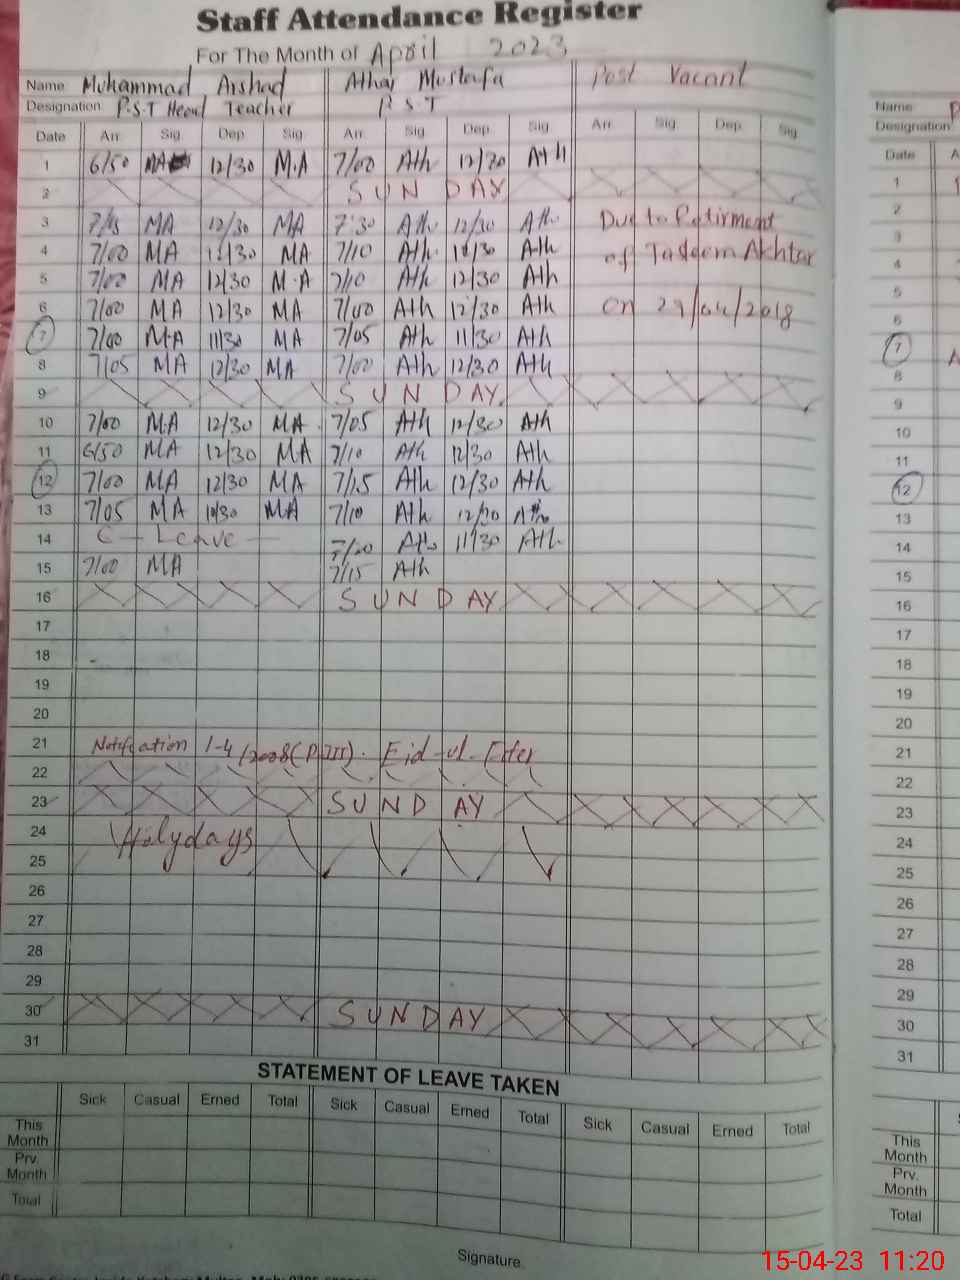 Staff Attendance Register
For The Month of April 2023
Name Muhammad Arshad Athar Mustafa Post Vacant
Designation P.S.T Head Teacher P.S.T
Date Arr. Sig. Dep. Sig. Arr. Sig. Dep. Sig. Arr. Sig. Dep. Sig.
1 6/50 12/30 M.A 7/00 Ath 12/30 Ath
2 SUNDAY
3 7/15 MA 12/30 MA 7:30 Ath 12/30 Ath Due to Retirment
4 7/00 MA 12/30 MA 7/10 Ath 12/30 Ath of Tasleem Akhter
5 7/00 MA 12/30 M.A 7/10 Ath 12/30 Ath
6 7/00 MA 12/30 MA 7/00 Ath 12/30 Ath on 29/04/2018
7 7/00 MA 11/30 MA 7/05 Ath 11/30 Ath
8 7/05 MA 12/30 MA 7/00 Ath 12/30 Ath
9 SUNDAY
10 7/00 MA 12/30 MA 7/05 Ath 12/30 Ath
11 6/50 MA 12/30 MA 7/10 Ath 12/30 Ath
12 7/00 MA 12/30 MA 7/15 Ath 12/30 Ath
13 7/05 MA 12/30 MA 7/10 Ath Ath
14 C - Leave - 7/20 Ath 11/30 Ath
15 7/00 MA 7/15 Ath
16 SUNDAY
17
18
19
20
21 Notification 1-4/2008 Eid-ul-Fiter
22
23 SUNDAY
24 Holydays
25
26
27
28
29
30 SUNDAY
31
STATEMENT OF LEAVE TAKEN
Sick Casual Erned Total Sick Casual Erned Total Sick Casual Erned Total
This Month
Prv. Month
Total
Signature.
Name
Designation
Date A
1
2
3
4
5
6
7
8
9
10
11
12
13
14
15
16
17
18
19
20
21
22
23
24
25
26
27
28
29
30
31
This Month
Prv. Month
Total
15-04-23 11:20